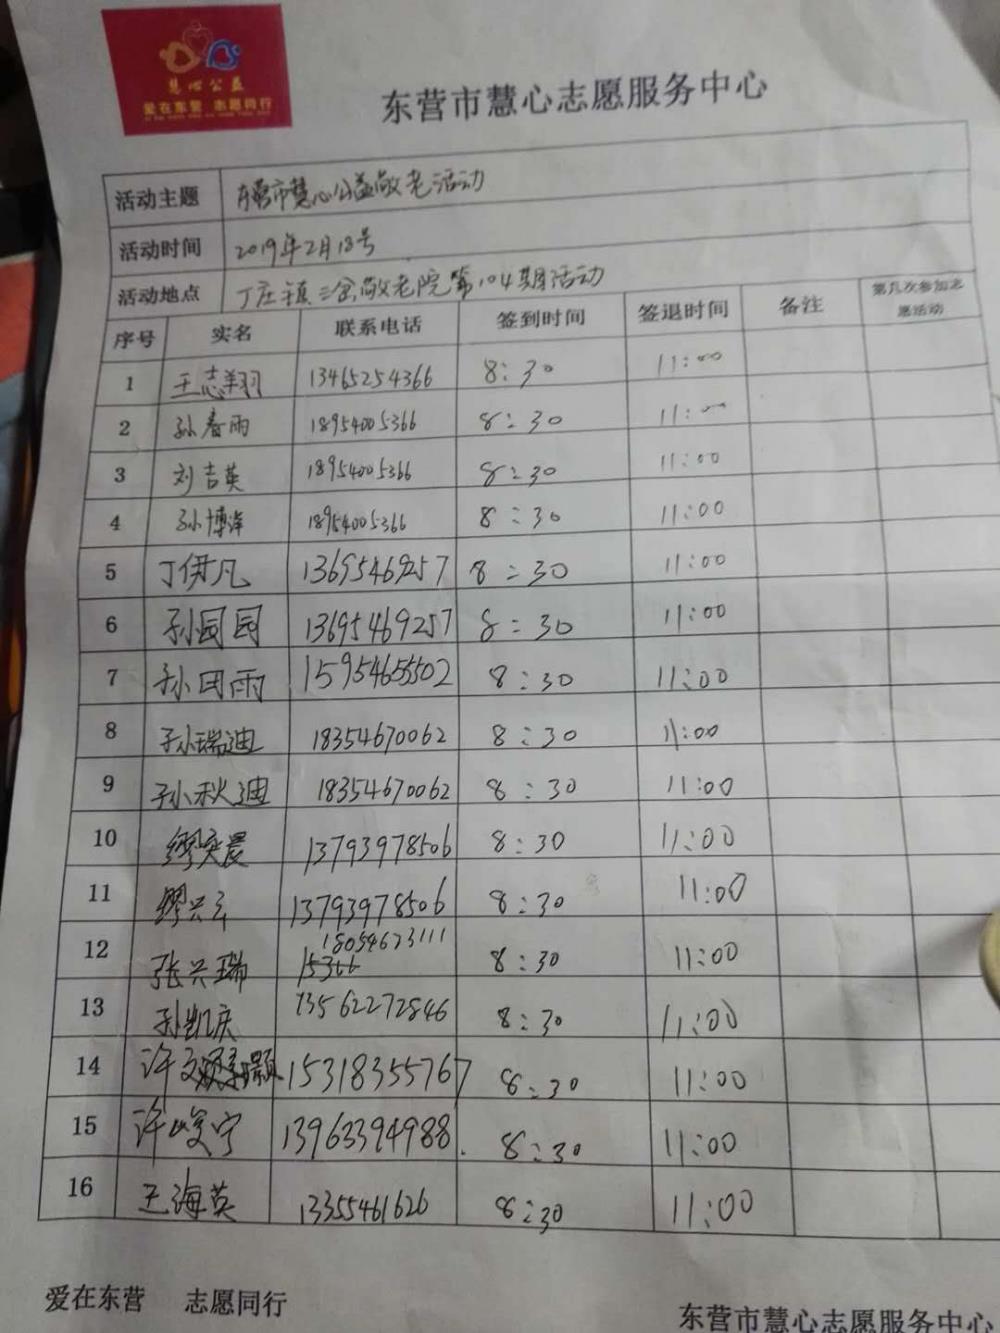 慧心公益
爱在东营 志愿同行
东营市慧心志愿服务中心
活动主题 东营市慧心公益敬老活动
活动时间 2019年2月18号
活动地点 丁庄镇三岔敬老院第104期活动
序号 实名 联系电话 签到时间 签退时间 备注 第几次参加志愿活动
1 王志翔 13465254366 8:30 11:00
2 孙春雨 18954005366 8:30 11:00
3 刘吉英 18954005366 8:30 11:00
4 孙博洋 18954005366 8:30 11:00
5 丁伊凡 13695469257 8:30 11:00
6 孙园园 13695469257 8:30 11:00
7 孙团雨 15954655502 8:30 11:00
8 孙瑞迪 18354670062 8:30 11:00
9 孙秋迪 18354670062 8:30 11:00
10 缪奕晨 13793978506 8:30 11:00
11 缪兴 13793978506 8:30 11:00
12 张兴瑞 18054623111 15366 8:30 11:00
13 孙凯庆 13562272846 8:30 11:00
14 许文颢 15318355767 8:30 11:00
15 许峻宁 13963394988. 8:30 11:00
16 王海英 13355461626 8:30 11:00
爱在东营 志愿同行
东营市慧心志愿服务中心